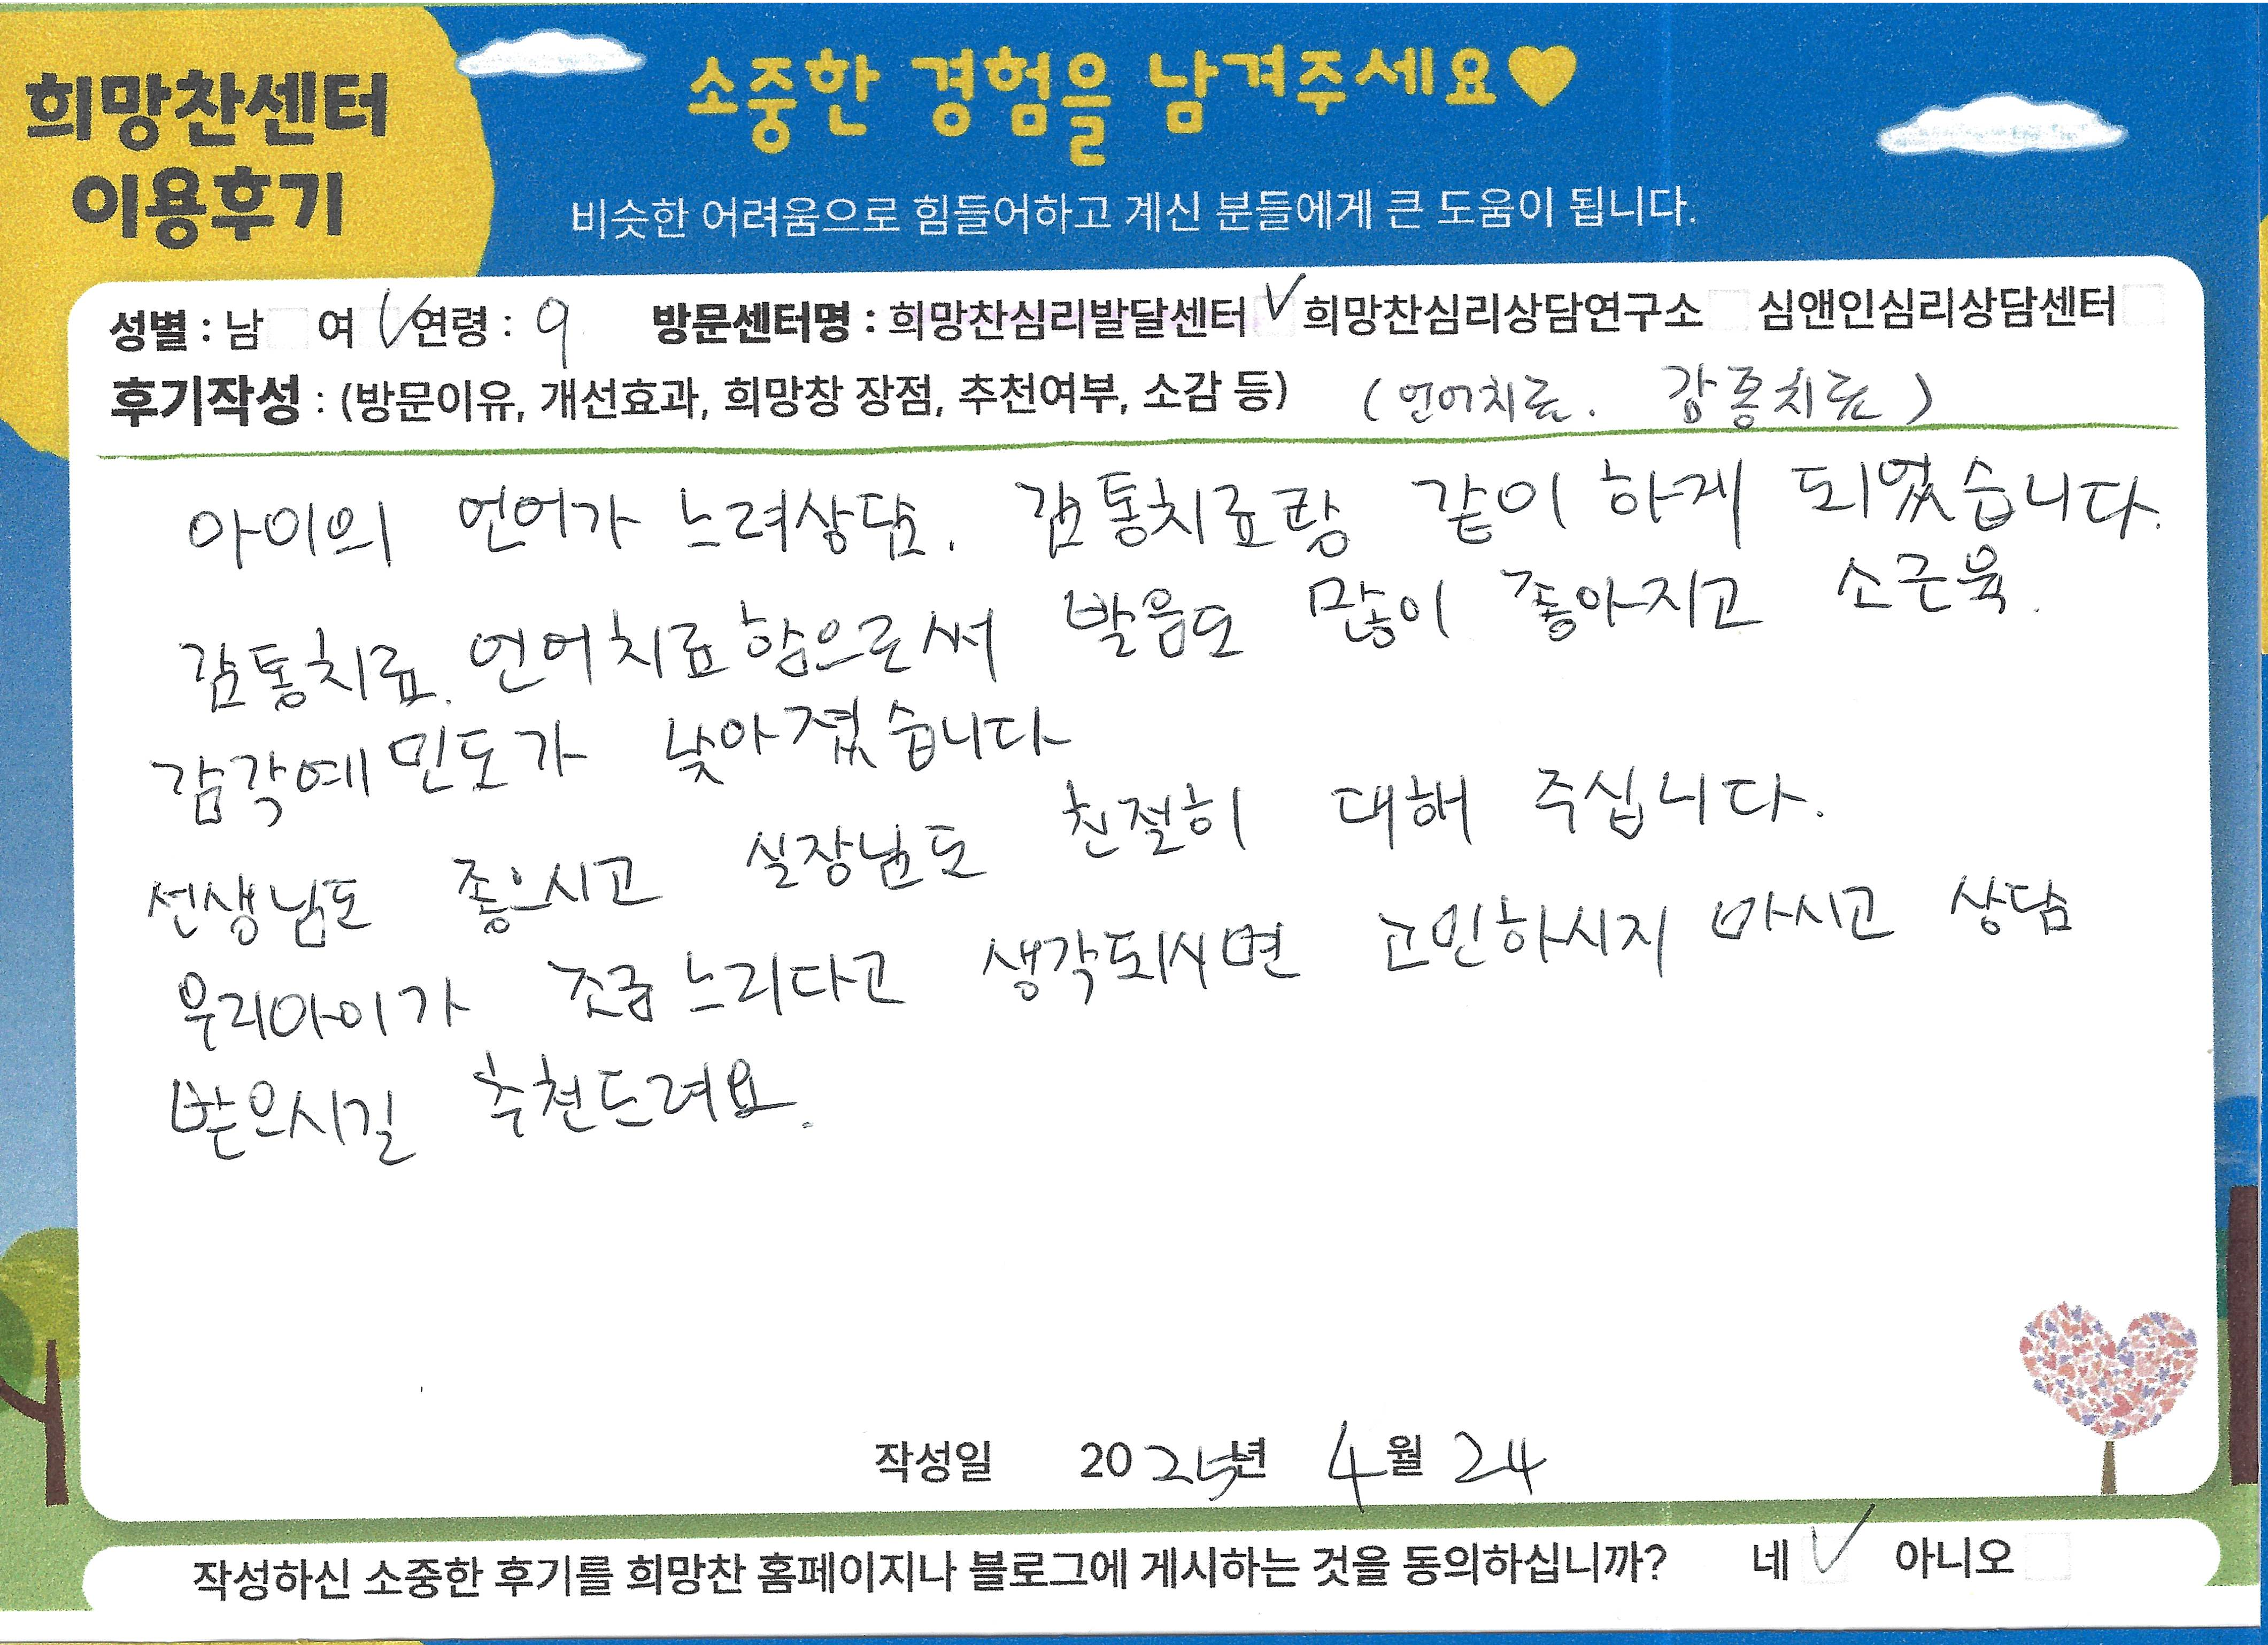 희망찬센터
이용후기
소중한 경험을 남겨주세요♥
비슷한 어려움으로 힘들어하고 계신 분들에게 큰 도움이 됩니다.
성별 : 남 여 ✓ 연령 : 9 방문센터명 : 희망찬심리발달센터 ✓ 희망찬심리상담연구소 심앤인심리상담센터
후기작성 : (방문이유, 개선효과, 희망창 장점, 추천여부, 소감 등) (언어치료. 감통치료)
아이의 언어가 느려상담. 감통치료랑 같이 하게 되었습니다.
감통치료. 언어치료함으로써 발음도 많이 좋아지고 소근육.
감각예민도가 낮아졌습니다
선생님도 좋으시고 실장님도 친절히 대해 주십니다.
우리아이가 조금 느리다고 생각되시면 고민하시지 마시고 상담
받으시길 추천드려요.
작성일 2025년 4월 24
작성하신 소중한 후기를 희망찬 홈페이지나 블로그에 게시하는 것을 동의하십니까? 네 ✓ 아니오